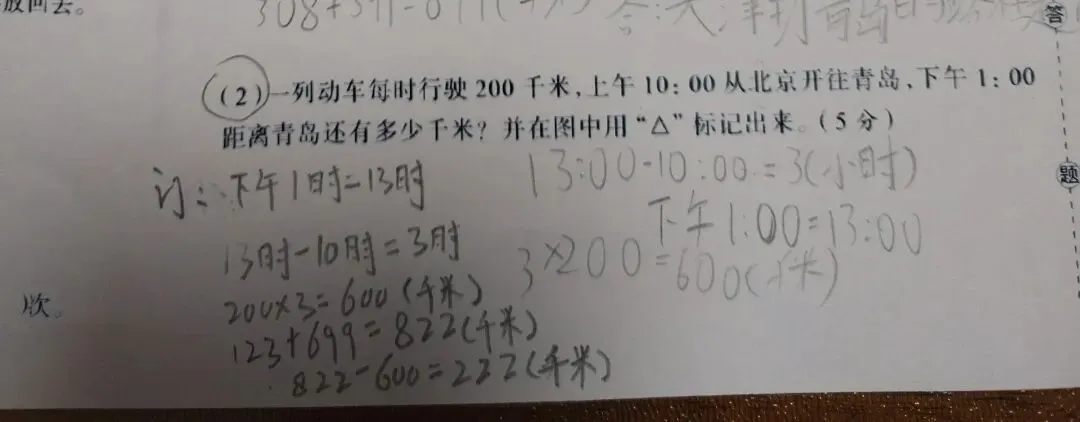 放回去。
答:天津到青岛
答
(2)一列动车每时行驶 200 千米,上午 10:00 从北京开往青岛,下午 1:00
距离青岛还有多少千米?并在图中用“△”标记出来。(5 分)
题
订:下午1时=13时
13:00-10:00=3(小时)
下午1:00=13:00
13时-10时=3时
3×200=600(千米)
200×3=600(千米)
欤。
123+699=822(千米)
822-600=222(千米)